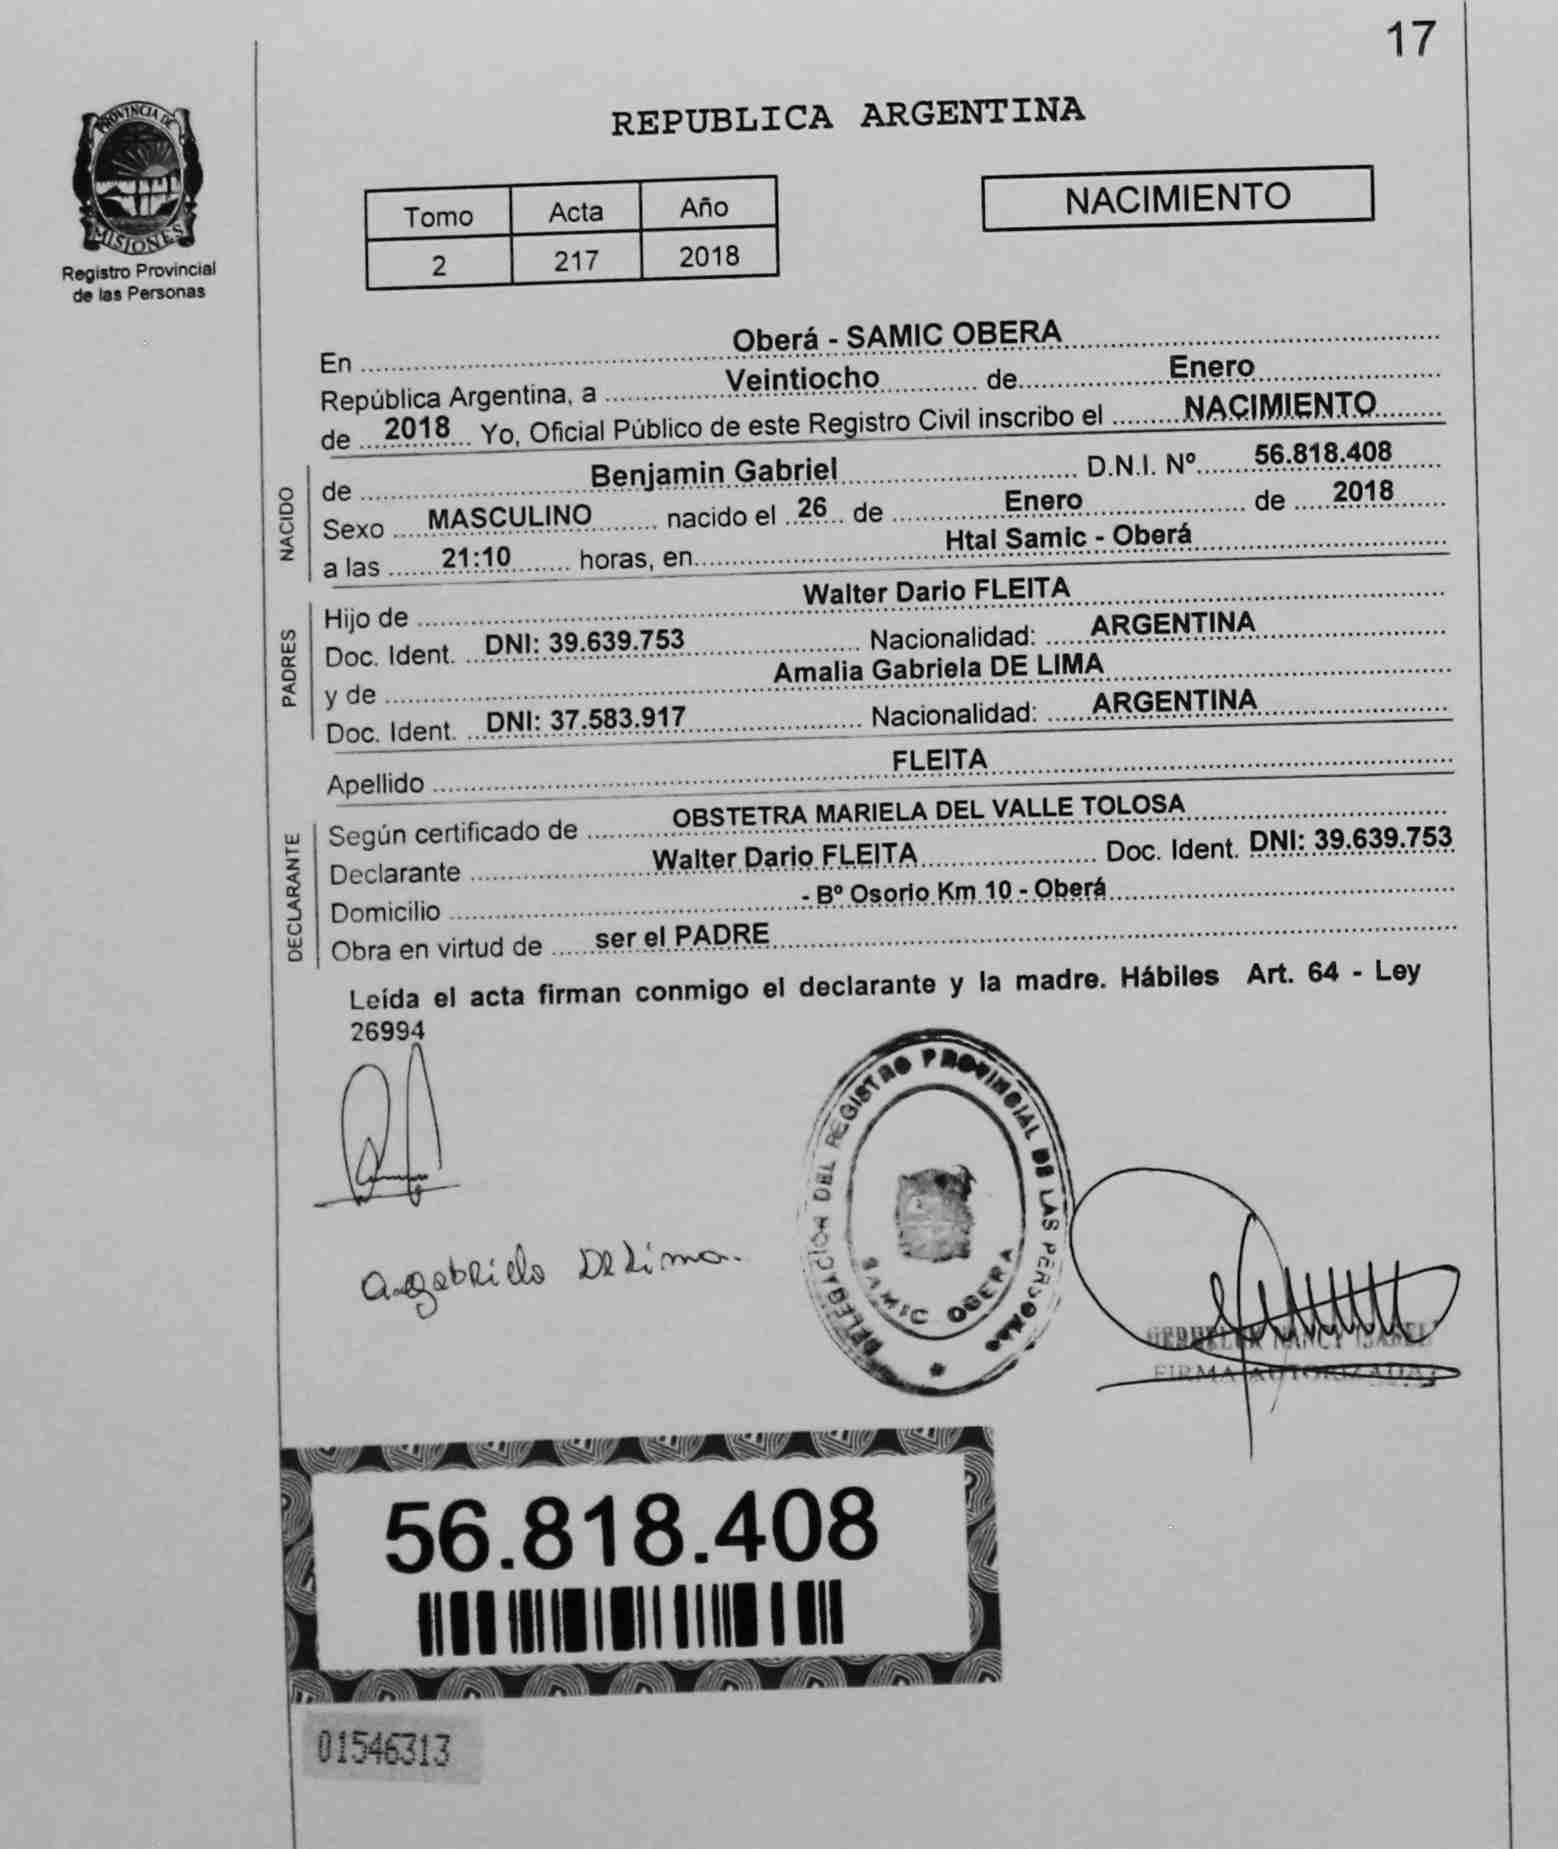 17
PROVINCIA DE
MISIONES
Registro Provincial
de las Personas
REPUBLICA ARGENTINA
Tomo Acta Año
2 217 2018
NACIMIENTO
En Oberá - SAMIC OBERA
República Argentina, a Veintiocho de Enero
de 2018 Yo, Oficial Público de este Registro Civil inscribo el NACIMIENTO
NACIDO
de Benjamin Gabriel D.N.I. Nº 56.818.408
Sexo MASCULINO nacido el 26 de Enero de 2018
a las 21:10 horas, en Htal Samic - Oberá
PADRES
Hijo de Walter Dario FLEITA
Doc. Ident. DNI: 39.639.753 Nacionalidad: ARGENTINA
y de Amalia Gabriela DE LIMA
Doc. Ident. DNI: 37.583.917 Nacionalidad: ARGENTINA
Apellido FLEITA
DECLARANTE
Según certificado de OBSTETRA MARIELA DEL VALLE TOLOSA
Declarante Walter Dario FLEITA Doc. Ident. DNI: 39.639.753
Domicilio - Bº Osorio Km 10 - Oberá
Obra en virtud de ser el PADRE
Leída el acta firman conmigo el declarante y la madre. Hábiles Art. 64 - Ley
26994
DELEGACION DEL REGISTRO PROVINCIAL DE LAS PERSONAS
SAMIC OBERA
A. gabriela De Lima.
NANCY ISABEL
FIRMA AUTORIZADA
56.818.408
01546313